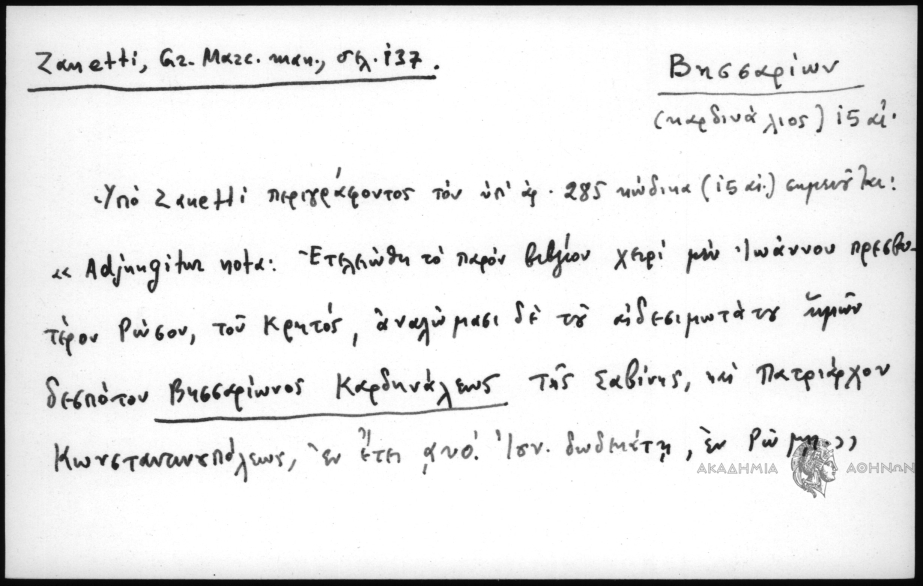 Zanetti, Gr. Marc. man., σελ. 137.
Βησσαρίων
(καρδινάλιος) 15 αἰ.
Ὑπό Zanetti περιγράφοντος τόν ὑπ' ἀρ. 285 κώδικα (15 αἰ.) σημειοῦται:
«Adjungitur nota: Ἐτελειώθη τὸ παρόν βιβλίον χειρί μὲν Ἰωάννου πρεσβυ-
τέρου Ρώσου, τοῦ Κρητός, ἀναλώμασι δὲ τοῦ αἰδεσιμωτάτου ἡμῶν
δεσπότου Βησσαρίωνος Καρδηνάλεως τῆς Σαβίνης, καὶ Πατριάρχου
Κωνσταντινουπόλεως, ἐν ἔτει ͵αυό. Ἰον. δωδεκάτῃ, ἐν Ρώμῃ.»
ΑΚΑΔΗΜΙΑ ΑΘΗΝΩΝ